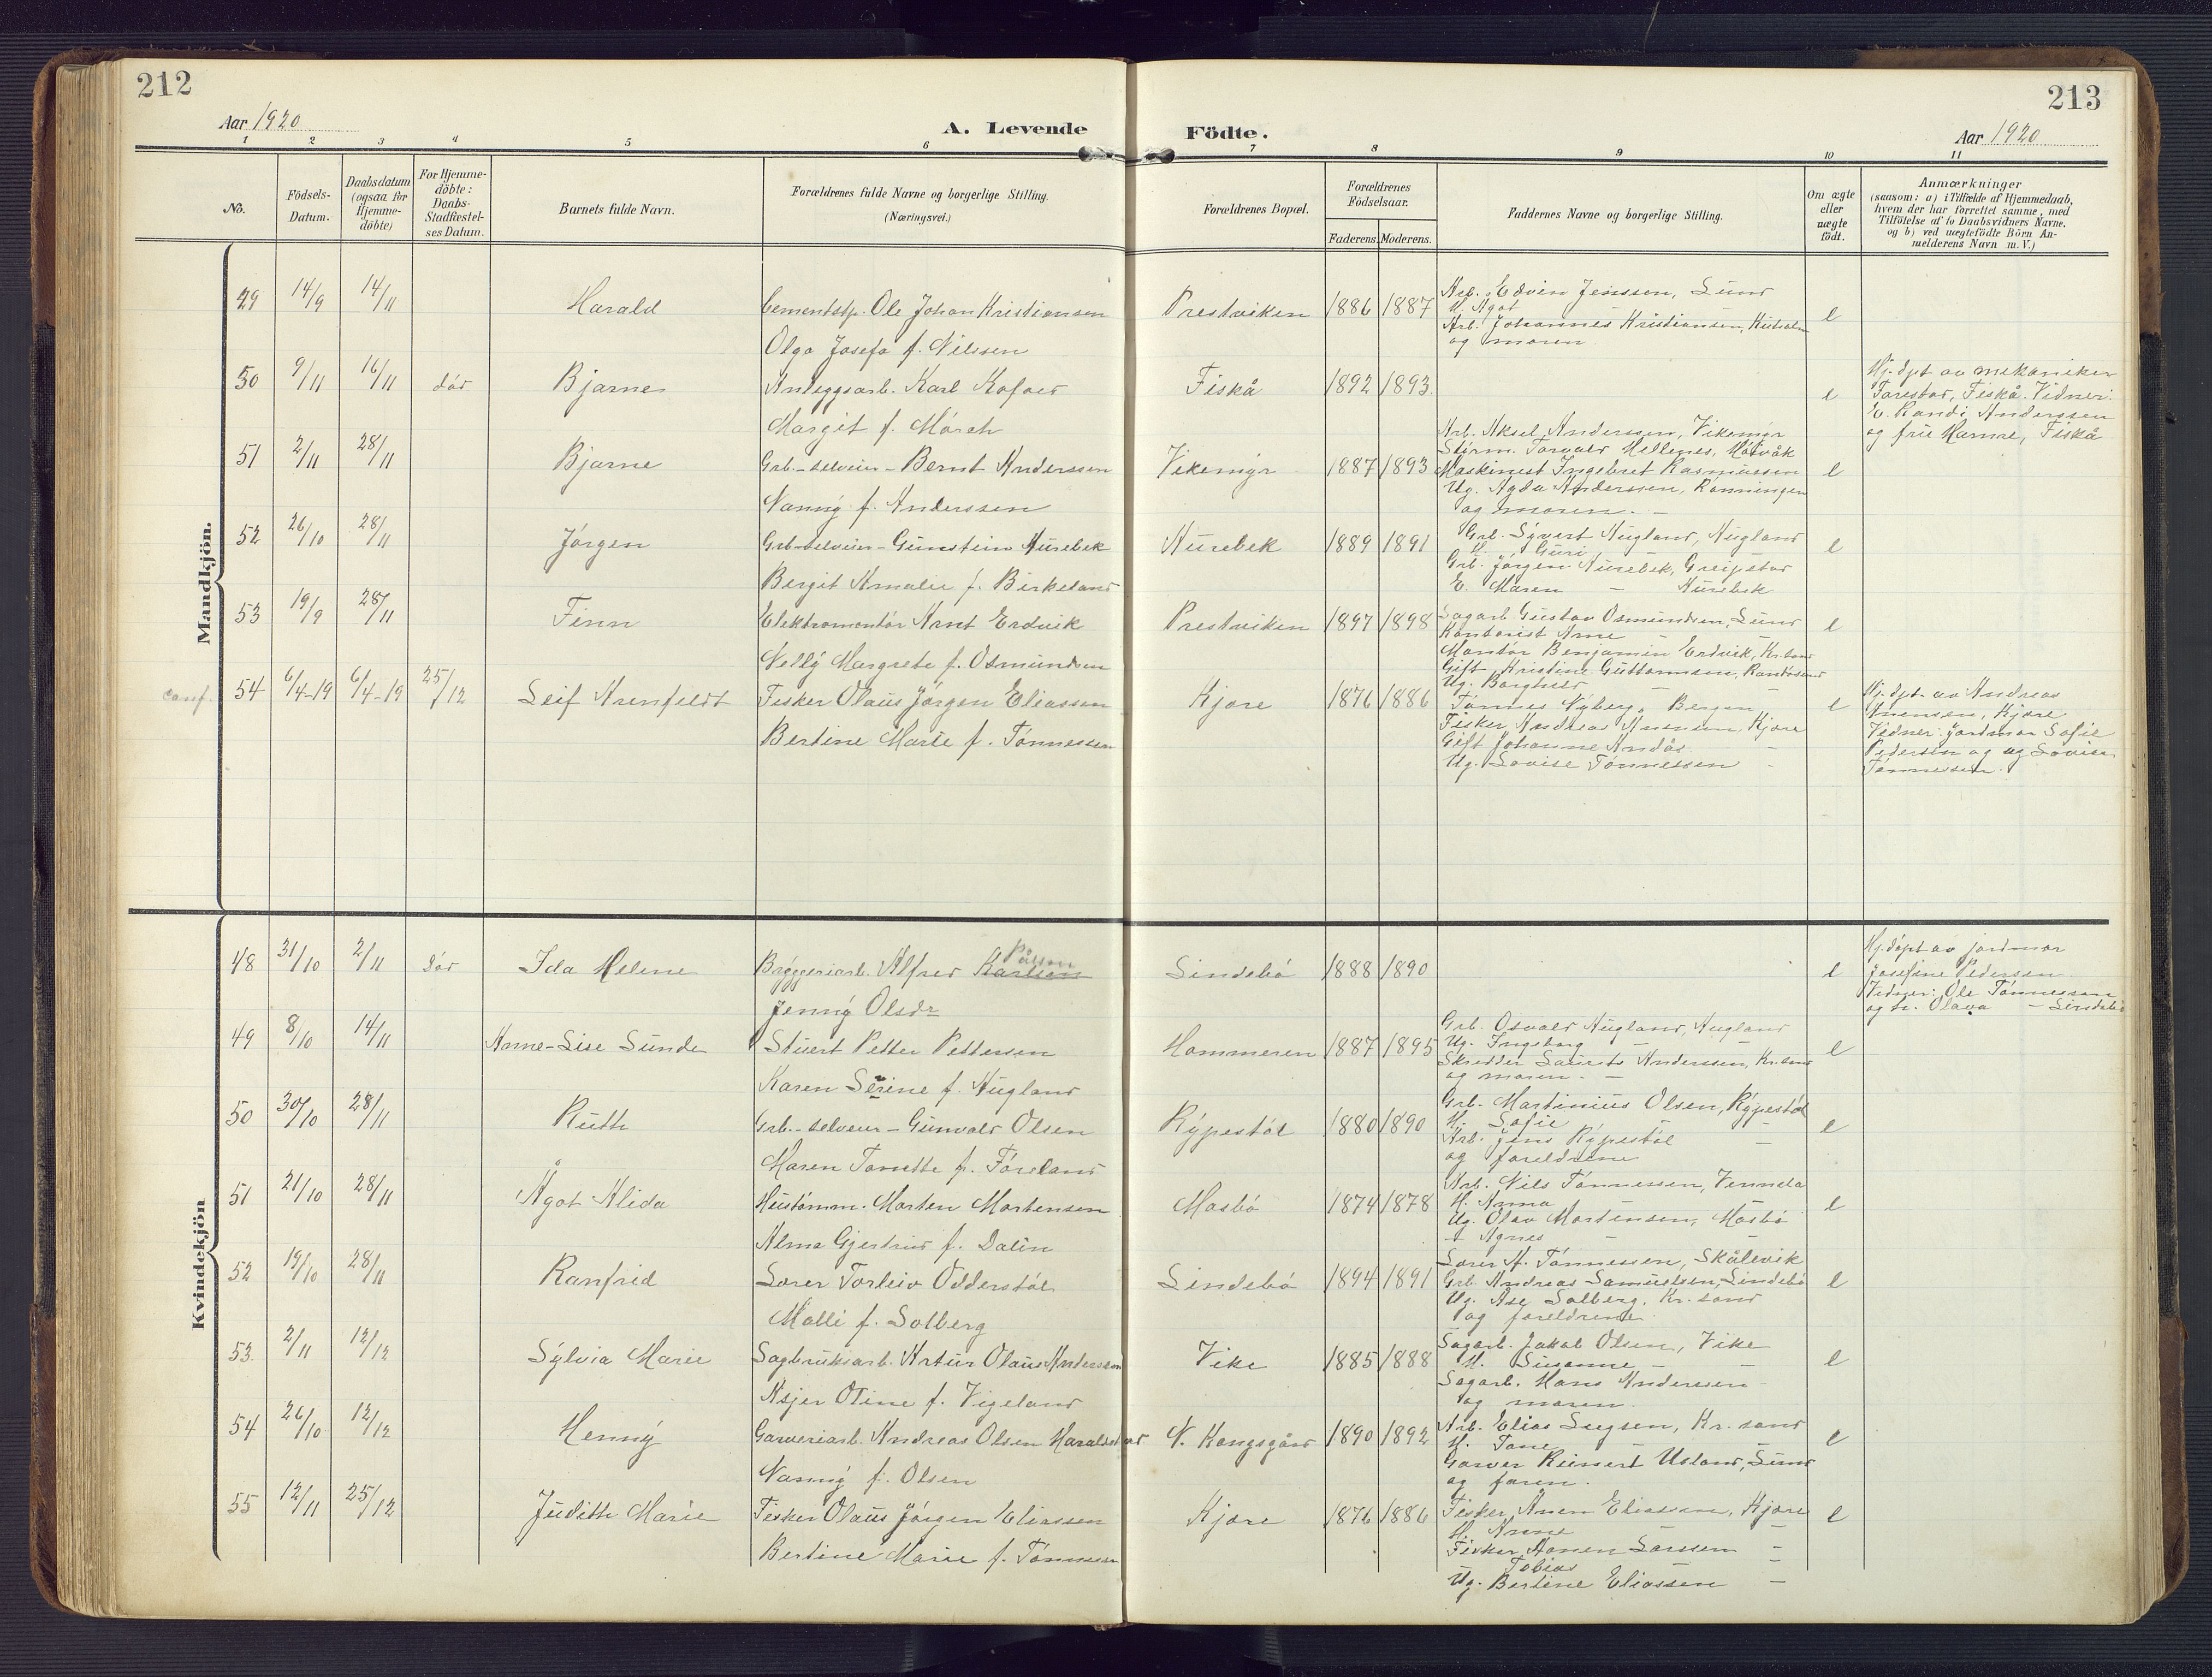 212
213
Aar 1920
A. Levende Födte.
Aar 1920
1 2 3 4 5 6 7 8 9 10 11
No.
Födsels-Datum.
Daabsdatum (ogsaa for Hjemme-döbte)
For Hjemme-döbte: Daabs-Stadfæstel-ses Datum.
Barnets fulde Navn.
Forældrenes fulde Navne og borgerlige Stilling. (Næringsvei.)
Forældrenes Bopæl.
Forældrenes Födselsaar.
Faderens. Moderens.
Faddernes Navne og borgerlige Stilling.
Om ægte eller uægte födt.
Anmærkninger
(saasom: a) i Tilfælde af Hjemmedaab,
hvem der har forrettet samme, med
Tilföielse af to Daabsvidners Navne,
og b) ved uægtefödte Börn An-
melderens Navn m. V.)
Mandkjön.
49 14/9 14/11 Harald
Cementstp. Ole Johan Kristiansen
Olga Josefa f. Nilssen
Prestviken 1886 1887
Arb. Edvin Jenssen, Lund
H. Agot
Arb. Johannes Kristiansen,
og moren
e
50 9/11 16/11 død Bjarne
Anleggsarb. Karl Kofoed
Margit f. Mørch
Fiskå 1892 1893
e
Hj.dpt av mekaniker
Farestad, Fiskå. Vidner:
E. Randi Anderssen
og frue Hamre, Fiskå
51 2/11 28/11 Bjarne
Grb.-selveier- Bernt Anderssen
Nanny f. Anderssen
Vikemyr 1887 1893
Arb. Aksel Anderssen, Vikemyr
Styrm. Torvald Hellenes, Høvåk
Maskinist Ingebret Rasmussen
Ug. Agda Anderssen, Rønningen
og moren. -
e
52 26/10 28/11 Jørgen
Grb-selveier- Gunstein Aurebek
Bergit Amalie f. Birkeland
Aurebek 1889 1891
Grb. Syvert Augland, Augland
H. Guri
Grb. Jørgen Aurebek, Greipstad
E. Maren - Aurebek
e
53 19/9 28/11 Finn
Elektromontør Arnt Erdvik
Nelly Margrete f. Osmundsen
Prestviken 1897 1898
Sagarb. Gustav Osmundsen, Lund
Kontorist Arne - -
Montør Benjamin Erdvik, Kr.sand
Gift Kristine Guttormsen, Randøsund
Ug. Borghild - -
e
conf. 54 6/4-19 6/4-19 25/12 Leif Arenfeldt
Fisker Olaus Jørgen Eliassen
Bertine Marie f. Tønnessen
Kjøre 1876 1886
Tønnes Nyberg, Bergen
Fisker Andreas Anensen, Kjøre
Gift Johanne Andås -
Ug. Lovise Tønnessen -
e
Hj.dpt. av Andreas
Anensen, Kjøre
Vidner: Jordmor Sofie
Pedersen og ug Lovise
Tønnessen.
Kvindekjön
48 31/10 2/11 død Ida Helene
Bryggeriarb. Alfred Karlsen
Jenny Olsdr
Lindebø 1888 1890
e
Hj.døpt av jordmor
Josefine Pedersen
Vidner: Ole Tønnessen
og h. Olava - Lindebø
49 8/10 14/11 Anne-Lise Sunde
Stuert Petter Pettersen
Karen Serine f. Augland
Hammeren 1887 1895
Grb. Osvald Augland, Augland
Ug. Ingeborg - -
Skredder Laurits Anderssen, Kr.sand
og moren. -
e
50 30/10 28/11 Ruth
Grb.-selveier- Gunvald Olsen
Maren Tomette f. Føreland
Rypestøl 1880 1890
Grb. Martinius Olsen, Rypestøl
H. Sofie - -
Arb. Jens Rypestøl -
og foreldrene
e
51 21/10 28/11 Ågot Alida
Hustømm. Morten Mortensen
Alma Gjertrud f. Dalin
Mosbø 1874 1878
Arb. Nils Tønnessen, Vennesla
H. Anna - -
Ug. Olav Mortensen, Mosbø
+ Agnes - -
e
52 19/10 28/11 Ranfrid
Lærer Torleiv Odderstøl
Malli f. Solberg
Lindebø 1894 1891
Lærer A. Tønnessen, Skålevik
Grb. Andreas Samuelsen, Lindebø
Ug. Åse Solberg, Kr.sand
og foreldrene
e
53. 2/11 12/12 Sylvia Marie
Sagbruksarb. Artur Olaus Anderssen
Asjer Otine f. Vigeland
Vike 1885 1888
Sagarb. Jakob Olsen, Vike
H. Susanne - -
Sagarb. Hans Anderssen -
og moren.
e
54 26/10 12/12 Henny
Garveriarb. Andreas Olsen Haraldstad
Nanny f. Olsen
N. Kongsgård 1890 1892
Arb. Elias Siegsen, Kr.sand
H. Tone - -
Garver Reinert Udland, Lund
og faren.
e
55 12/11 25/12 Judith Marie
Fisker Olaus Jørgen Eliassen
Bertine Marie f. Tønnessen
Kjøre 1876 1886
Fisker Anen Eliassen, Kjøre
H. Anne -
Fisker Aanen Larssen -
Tobias -
Ug. Bertine Eliassen -
e